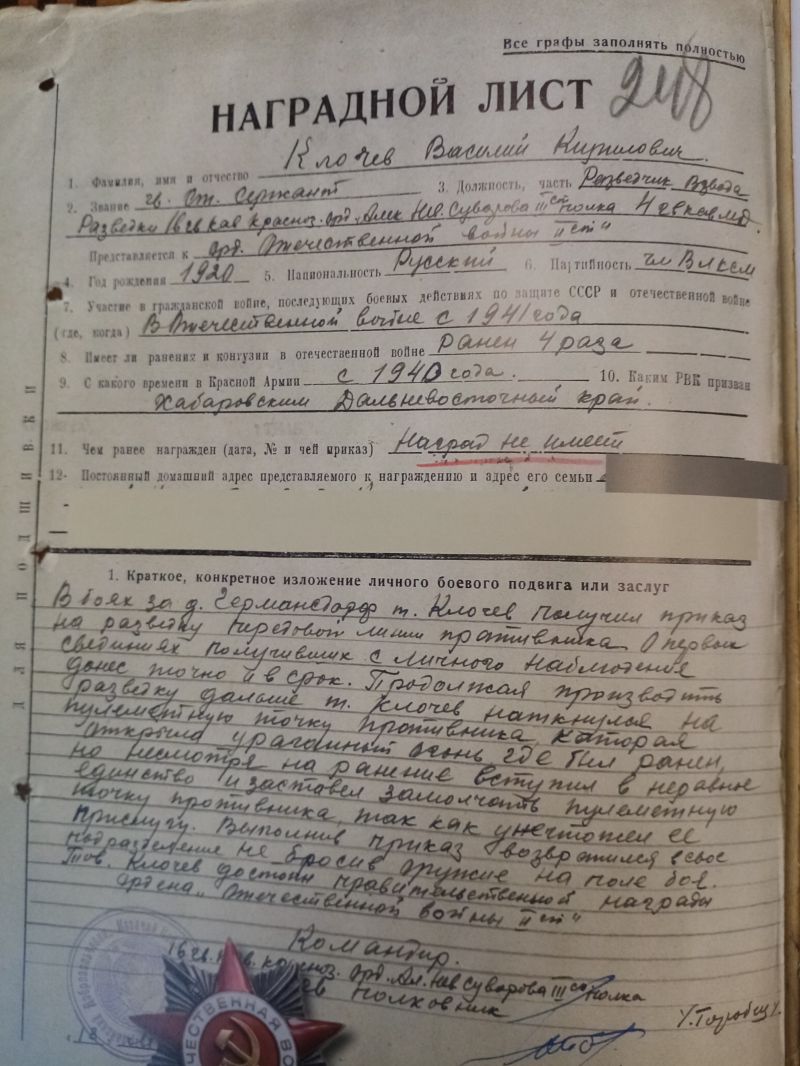 Все графы заполнять полностью
НАГРАДНОЙ ЛИСТ
1. Фамилия, имя и отчество Клочев Василий Кирилович
2. Звание гв. Ст. Сержант 3. Должность, часть Разведчик Взвода
Разведки 16 гв кав красноз. орд. Алек Нев. Суворова III ст полка 4 гв кав
Представляется к орд. Отечественной войны II ст"
4. Год рождения 1920 5. Национальность Русский 6. Партийность чл Влксм
7. Участие в гражданской войне, последующих боевых действиях по защите СССР и отечественной войне
(где, когда) В Отечественной войне с 1941 года
8. Имеет ли ранения и контузии в отечественной войне ранен 4 раза
9. С какого времени в Красной Армии с 1940 года. 10. Каким РВК призван
Хабаровским Дальневосточный край.
11. Чем ранее награжден (дата, № и чей приказ) Наград не имеет
12- Постоянный домашний адрес представляемого к награждению и адрес его семьи
ДЛЯ ПОДШИВКИ
1. Краткое, конкретное изложение личного боевого подвига или заслуг
В боях за д. Германсдорф т. Клочев получил приказ
на разведку передовой линии противника. О первых
свединиях получивших с личного наблюдения
донес точно и в срок. Продолжая производить
разведку дальше т. Клочев наткнулся на
пулеметную точку противника, каторая
открыла ураганный огонь где был ранен,
но несмотря на ранение вступил в неравное
единство и заставел замолчать пулеметную
точку противника, так как унечтожел её
прислугу. Выполнив приказ возвратился в свое
подразделение не бросив оружие на поле боя.
Тов. Клочев достоин правительственной награды
Ордена "Отечественной войны II ст"
Командир
16 гв. кав. красноз. орд. Ал. Нев Суворова III ст полка
полковник
ОТЕЧЕСТВЕННАЯ ВО